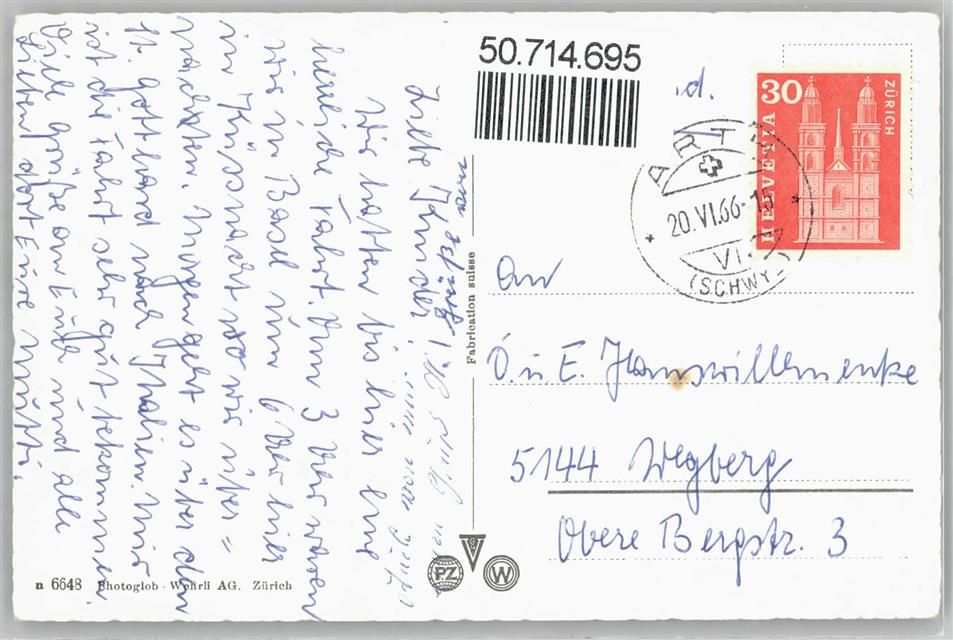 50.714.695
d.
30
HELVETIA
ZÜRICH
ARTH
20.VI.66-15
VI.
(SCHWYZ)
Liebe Kinder!
Wir hatten bis hier eine
herrliche Fahrt. Um 3 Uhr waren
wir in Basel um 6 Uhr hier
in Küssnacht wo wir über=
nachten. Morgen geht es über den
St. Gotthard nach Italien. Mir
ist die Fahrt sehr gut bekommen
Viele Grüße an Euch und alle
Lieben dort Eure Mutti.
Fabrication suisse
An
O. u. E. Hanswillemenke
5144 Wegberg
Obere Bergstr. 3
PZ
W
n 6648 Photoglob-Wehrli AG. Zürich